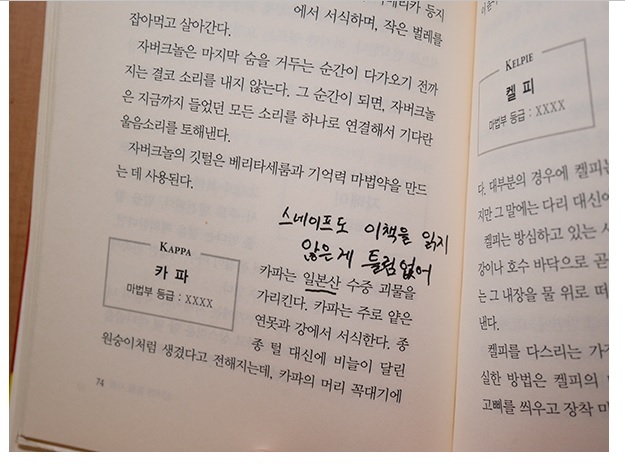 에서 서식하며, 작은 벌레를
잡아먹고 살아간다.
자버크놀은 마지막 숨을 거두는 순간이 다가오기 전까
지는 결코 소리를 내지 않는다. 그 순간이 되면, 자버크놀
은 지금까지 들었던 모든 소리를 하나로 연결해서 기다란
울음소리를 토해낸다.
자버크놀의 깃털은 베리타세룸과 기억력 마법약을 만드
는 데 사용된다.
스네이프도 이책을 읽지
않은게 틀림없어
KAPPA
카파
마법부 등급 : XXXX
카파는 일본산 수중 괴물을
가리킨다. 카파는 주로 얕은
연못과 강에서 서식한다. 종
종 털 대신에 비늘이 달린
원숭이처럼 생겼다고 전해지는데, 카파의 머리 꼭대기에
74
KELPIE
켈피
마법부 등급 : XXXX
다. 대부분의 경우에 켈피는
지만 그 말에는 다리 대신에
켈피는 방심하고 있는 사
강이나 호수 바닥으로 곧
는 그 내장을 물 위로 떠
낸다.
켈피를 다스리는 가
실한 방법은 켈피의
고삐를 씌우고 장착 마